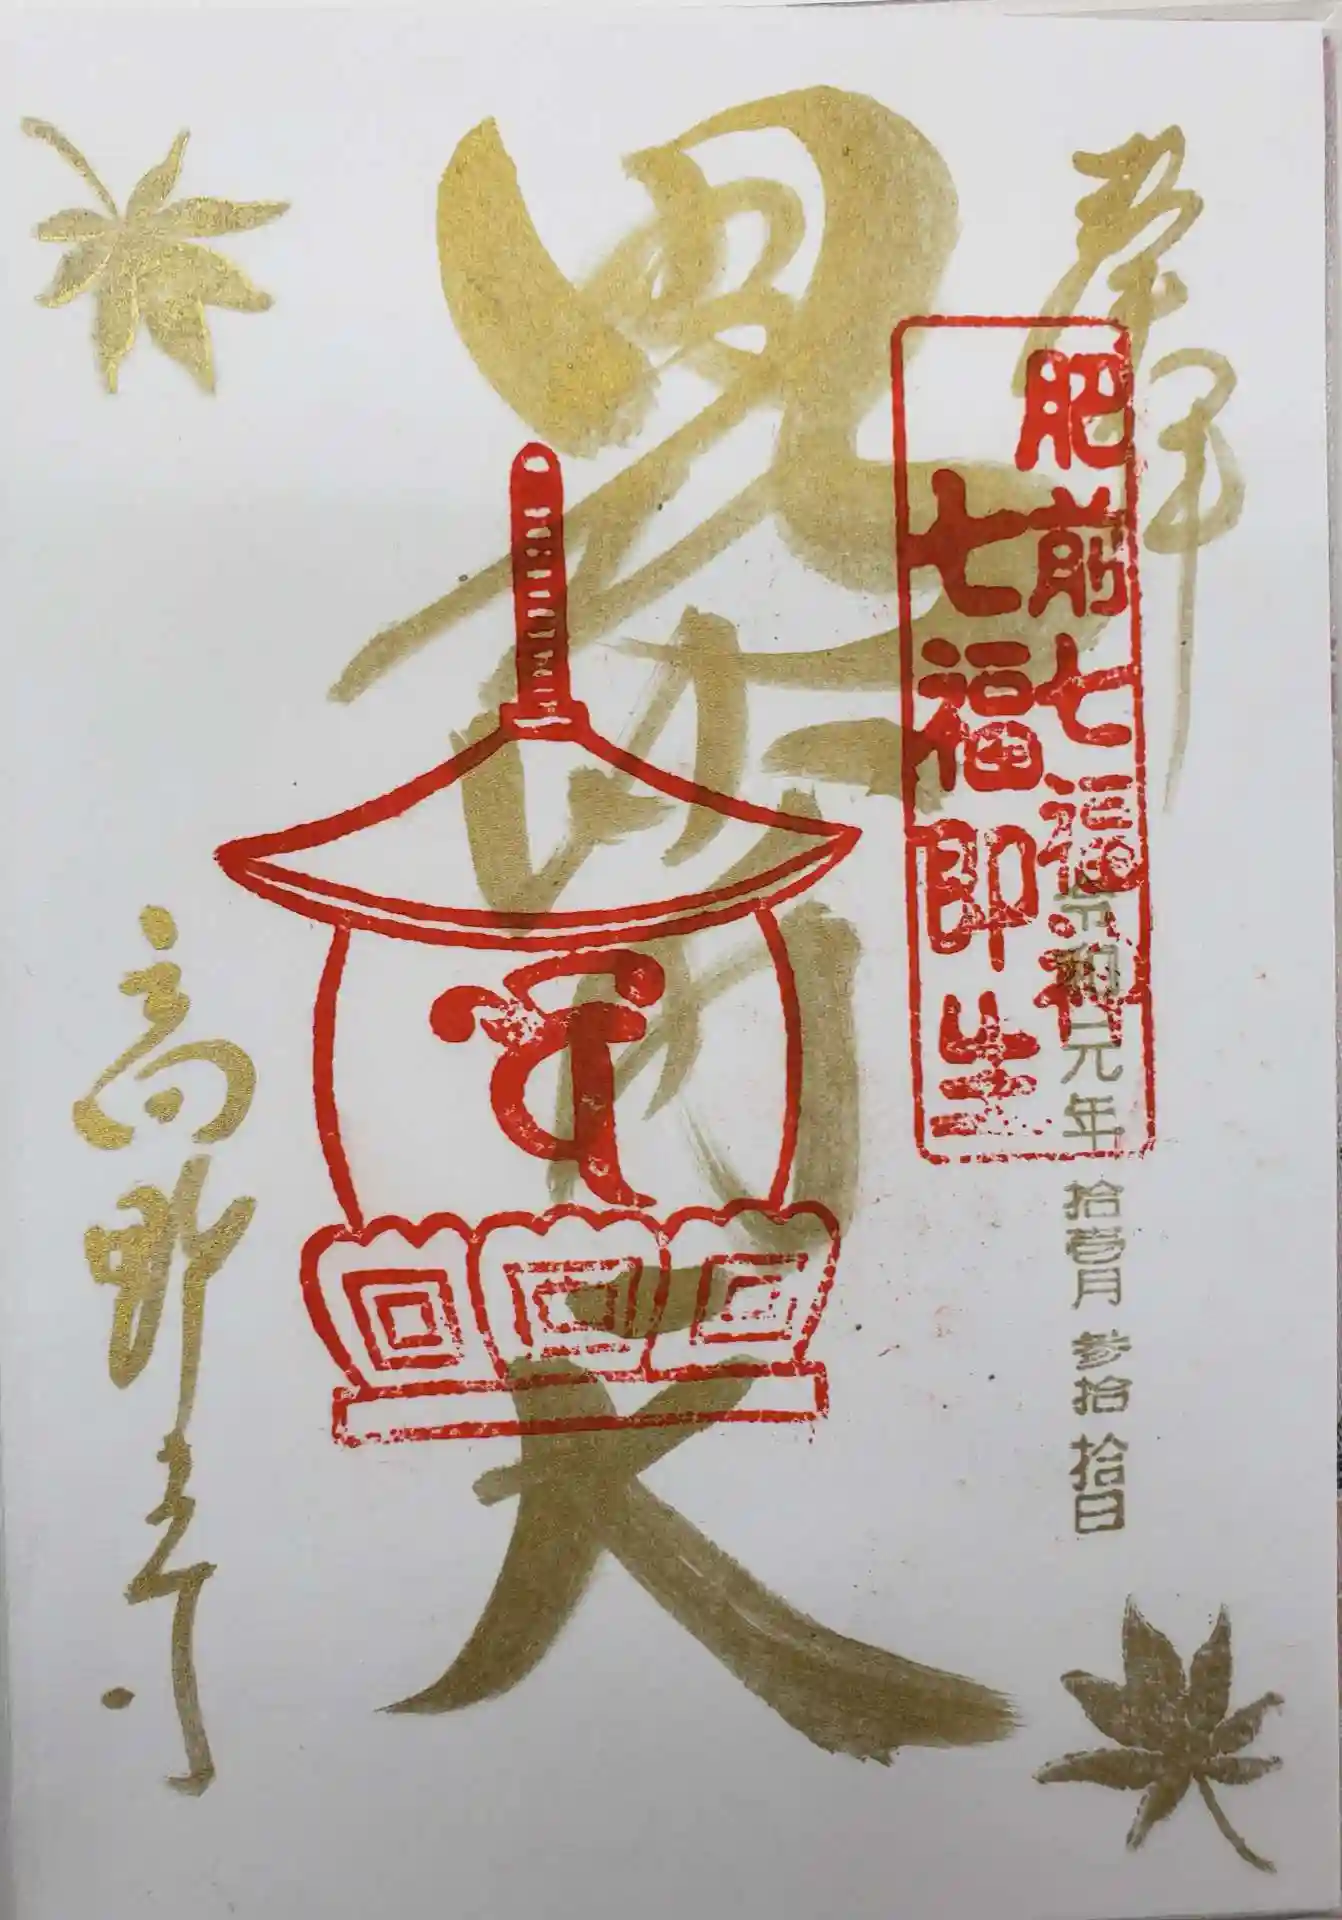 奉拝
肥前七福神
七福即生
令和元年拾壱月参拾拾日
毘沙門天
高野寺